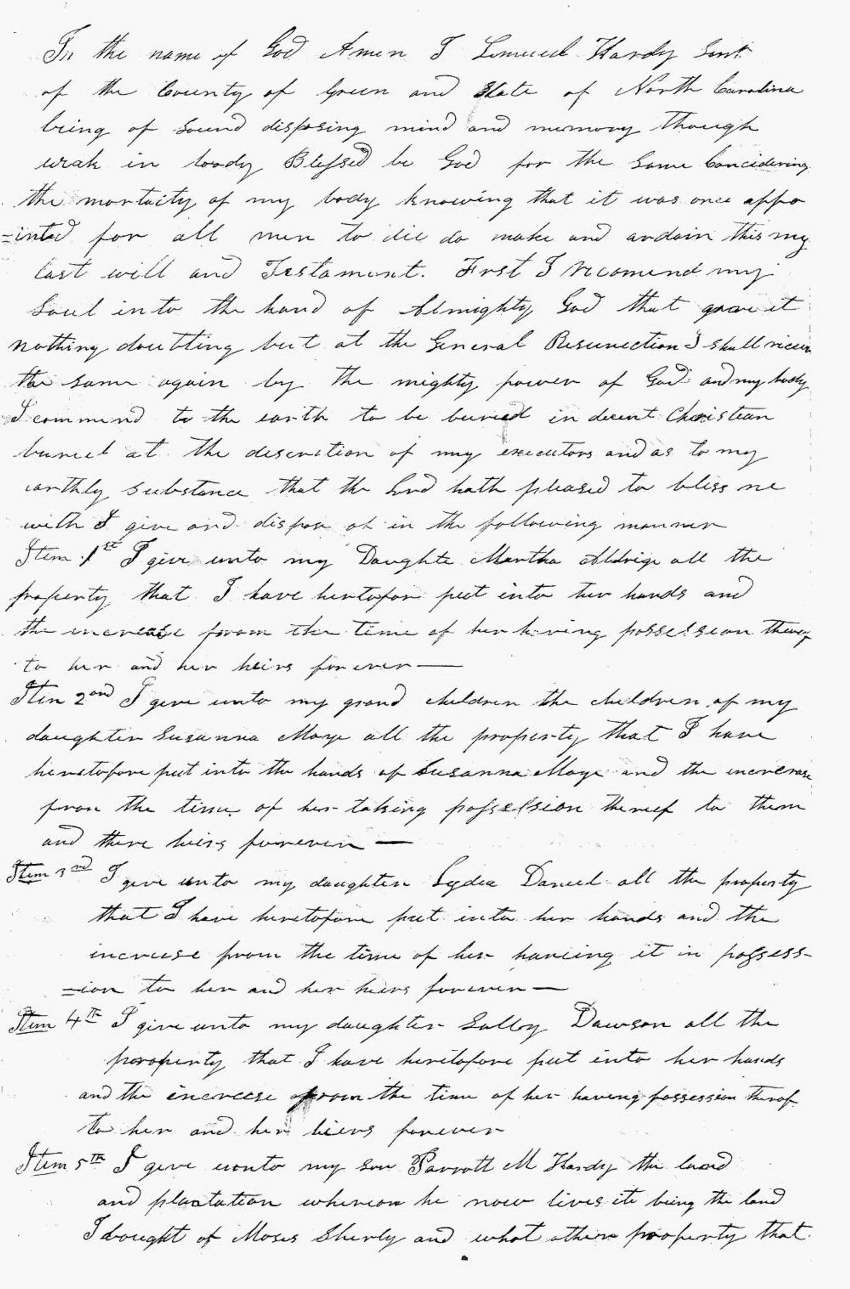 In the name of God Amen I Lemuel Hardy Senr
of the County of Green and State of North Carolina
being of sound disposing mind and memory though
weak in boody Blessed be God for the same Concidering
the mortacity of my body knowing that it was once appo
=inted for all men to die do make and ordain this my
last will and Testament. First I recomend my
Soul into the hand of Almighty God that gave it
nothing doubting but at the General Resurrection I shall receive
the same again by the mighty power of God and my body
I commend to the earth to be buried in decent Christian
buriel at the descretion of my executors and as to my
earthly substance that the Lord hath pleased to bless me
with I give and dispose of in the following manner
Item 1st I give unto my Daughte Martha Aldrige all the
property that I have hertofore put into her hands and
the increase from the time of her having possession thereof
to her and her heirs forever —
Item 2nd I give unto my grand children the children of my
daughter Susanna Moye all the property that I have
heretofore put into the hands of Susanna Moye and the increase
from the time of her taking possession thereof to them
and there heirs forever —
Item 3rd I give unto my daughter Lydia Daniel all the property
that I have heretofore put into her hands and the
increase from the time of her haveing it in possess-
=ion to her and her heirs forever —
Item 4th I give unto my daughter Sally Dawson all the
property that I have heretofore put into her hands
and the increese from the time of her having possession therof
to her and her heirs forever
Item 5th I give unto my son Parrott M Hardy the land
and plantation whereon he now lives its being the land
I bought of Moses Sherly and what other property that